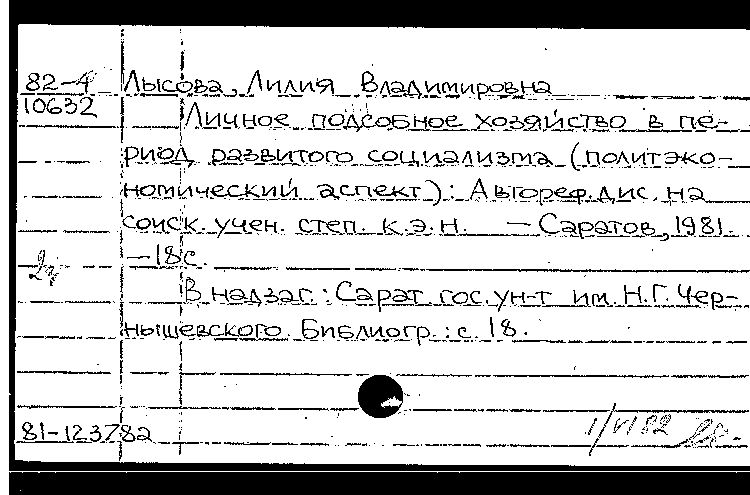 82-4 Лысова, Лилия Владимировна
10632 Личное подсобное хозяйство в пе-
риод развитого социализма (политэко-
номический аспект): Автореф. дис. на
соиск. учен. степ. к.э.н. — Саратов, 1981.
— 18 с.
В надзаг.: Сарат. гос. ун-т им. Н.Г. Чер-
нышевского. Библиогр.: с. 18.
81-123782
1/VI 82